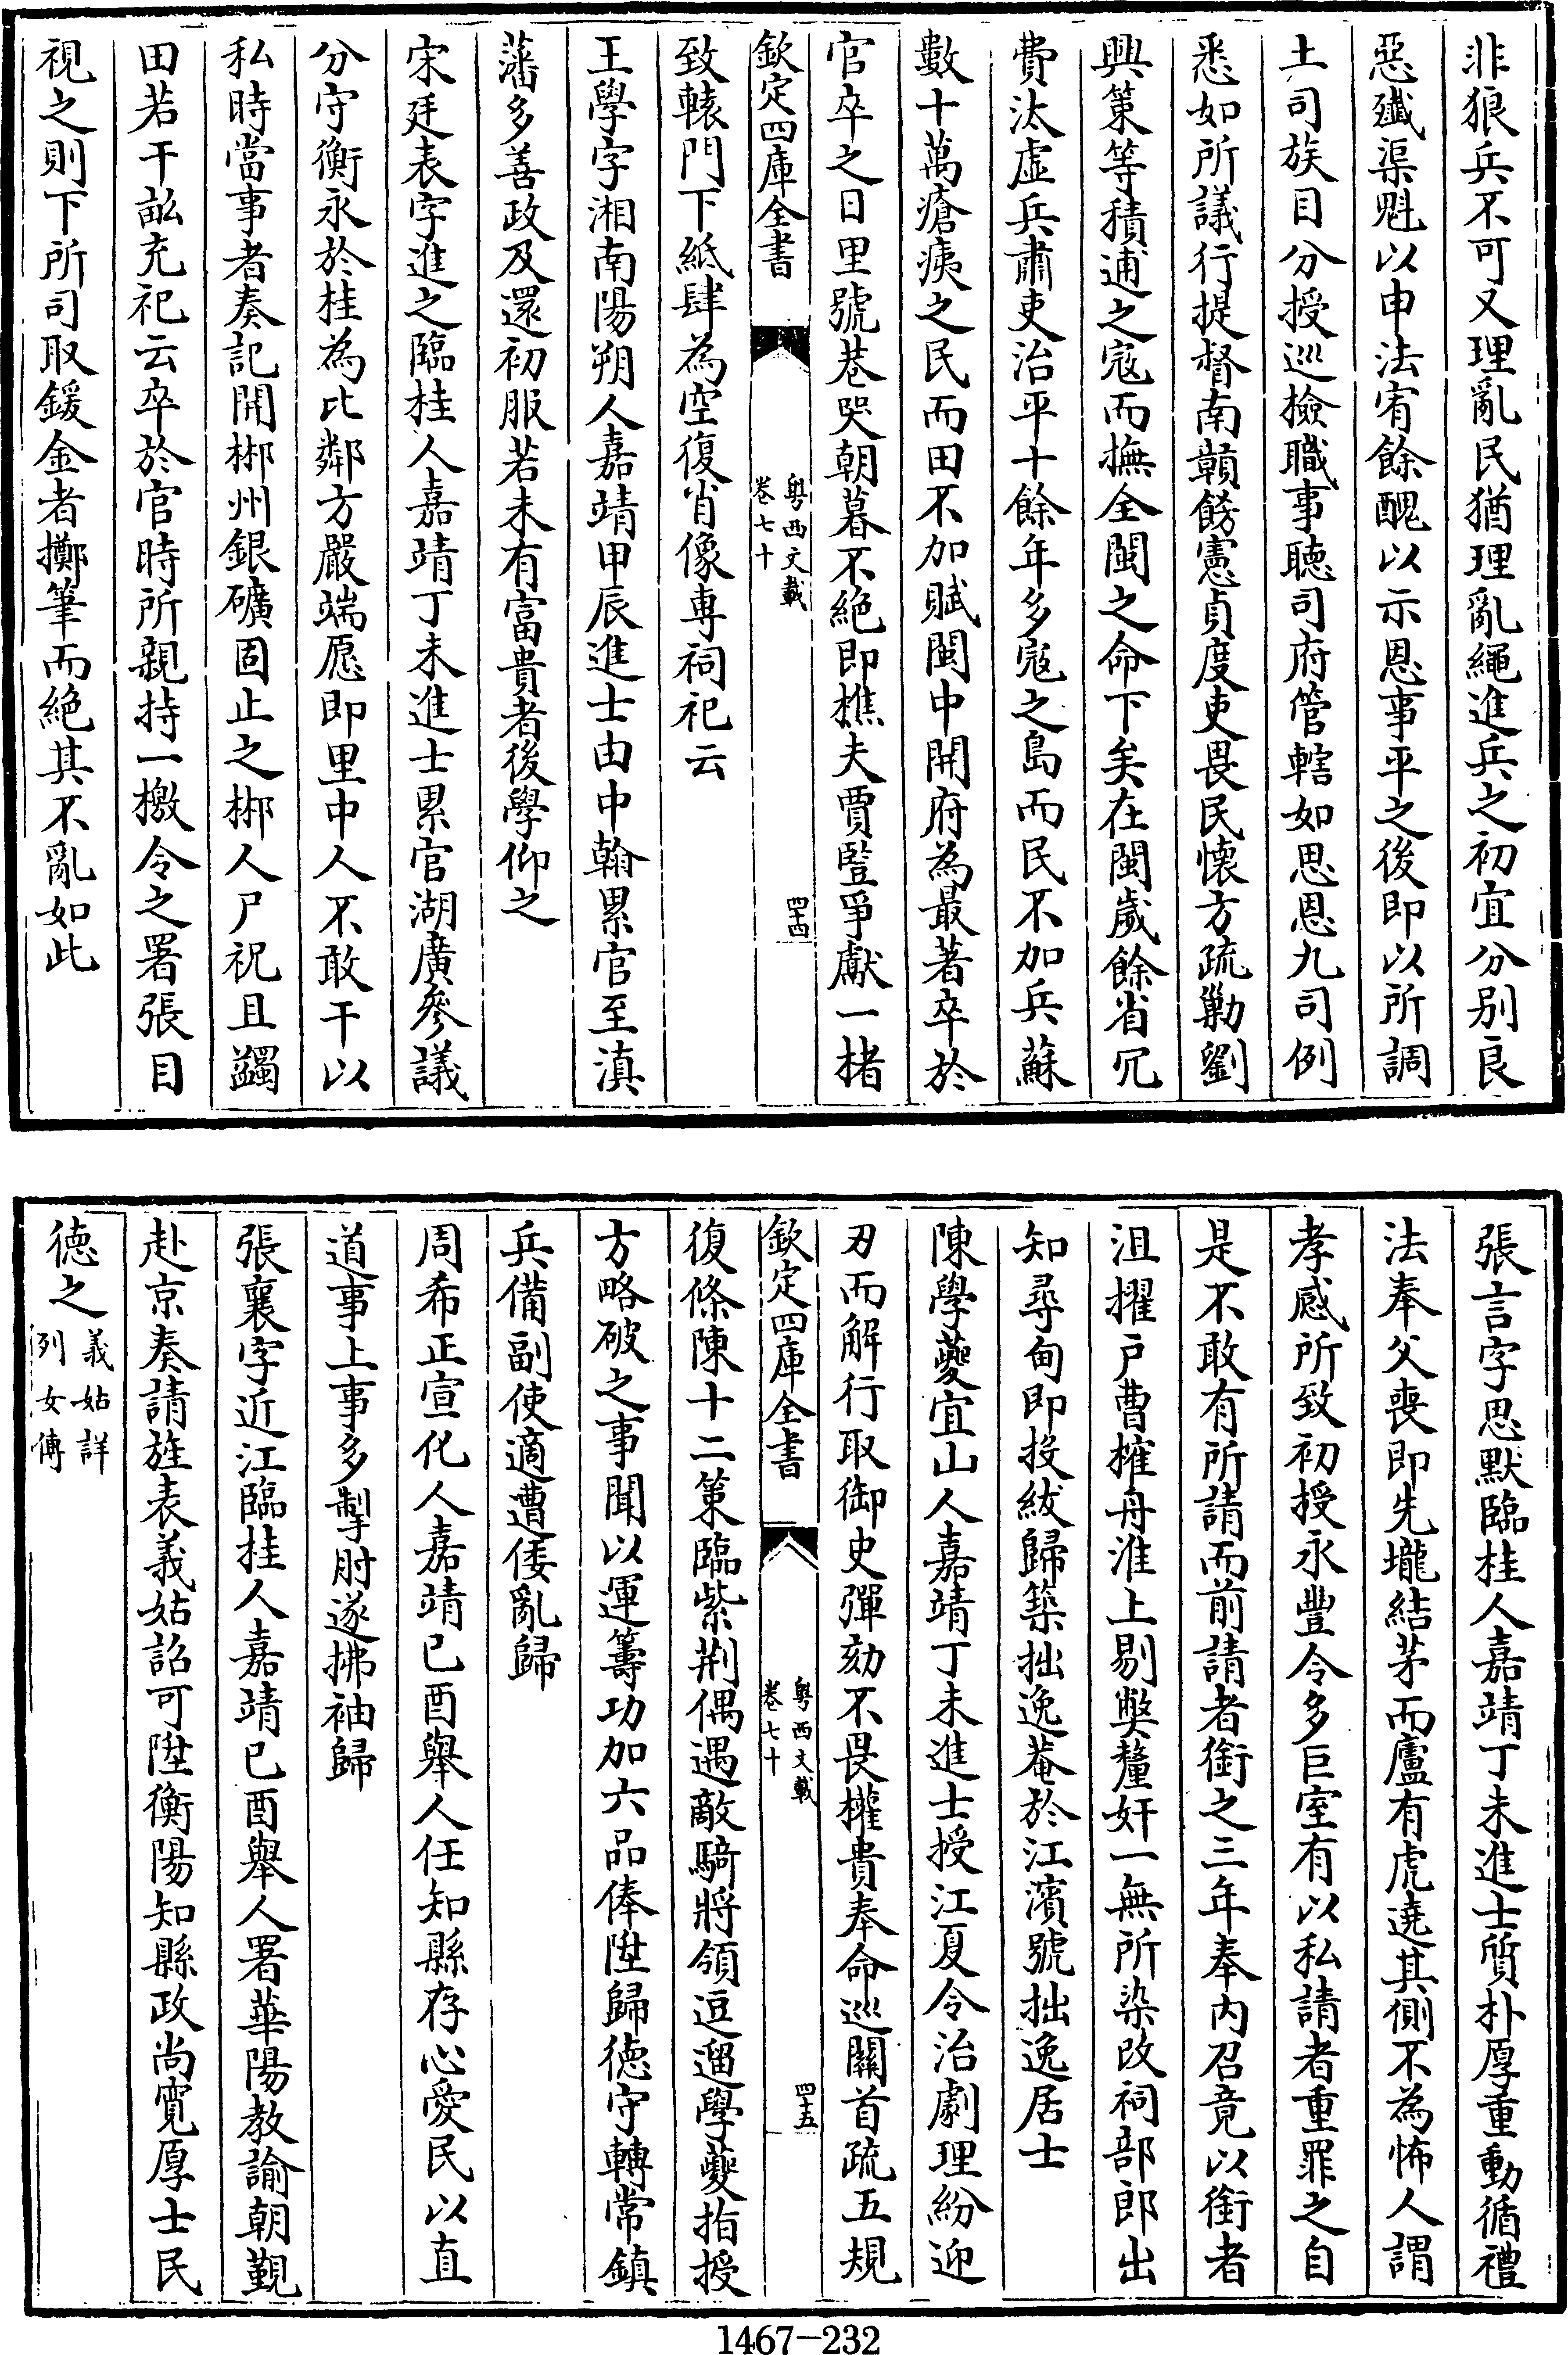 非狼兵不可又理亂民猶理亂繩進兵之初宜分别良
惡殲渠魁以申法宥餘醜以示恩事平之後即以所調
土司族目分授巡檢職事聽司府管轄如思恩九司例
悉如所議行提督南贑餝憲貞度吏畏民懐方疏勦劉
興策等積逋之寇而撫全閩之命下矣在閩歲餘省冗
費汰虛兵肅吏治平十餘年多宼之島而民不加兵蘇
數十萬瘡痍之民而田不加賦閩中開府為最著卒於
官卒之日里號巷哭朝暮不絶即樵夫賈豎爭獻一楮
欽定四庫全書
粤西文載
卷七十
四十四
致轅門下紙肆為空復肖像専祠祀云
王學字湘南陽朔人嘉靖甲辰進士由中翰累官至滇
藩多善政及還初服若未有富貴者後學仰之
宋廷表字進之臨桂人嘉靖丁未進士累官湖廣參議
分守衡永於桂為比鄰方嚴端愿即里中人不敢干以
私時當事者奏記開郴州銀礦固止之郴人尸祝且蠲
田若干畝充祀云卒於官時所親持一檄令之署張目
視之則下所司取鍰金者擲筆而絶其不亂如此
張言字思默臨桂人嘉靖丁未進士質朴厚重動循禮
法奉父喪即先壠結茅而廬有虎遶其側不為怖人謂
孝感所致初授永豐令多巨室有以私請者重罪之自
是不敢有所請而前請者銜之三年奉内召竟以銜者
沮擢戸曹榷舟淮上剔獘釐奸一無所染改祠部郎出
知尋甸即投紱歸築拙逸菴於江濱號拙逸居士
陳學夔宜山人嘉靖丁未進士授江夏令治劇理紛迎
刃而解行取御史彈劾不畏權貴奉命巡關首疏五規
欽定四庫全書
粤西文載
卷七十
四十五
復條陳十二策臨紫荆偶遇敵騎將領逗遛學夔指授
方略破之事聞以運籌功加六品俸陞歸德守轉常鎮
兵備副使適遭倭亂歸
周希正宣化人嘉靖已酉舉人任知縣存心愛民以直
道事上事多掣肘遂拂袖歸
張襄字近江臨桂人嘉靖已酉舉人署華陽教諭朝覲
赴京奏請旌表義姑詔可陞衡陽知縣政尚寛厚士民
徳之義姑詳
列女傳
1467-232